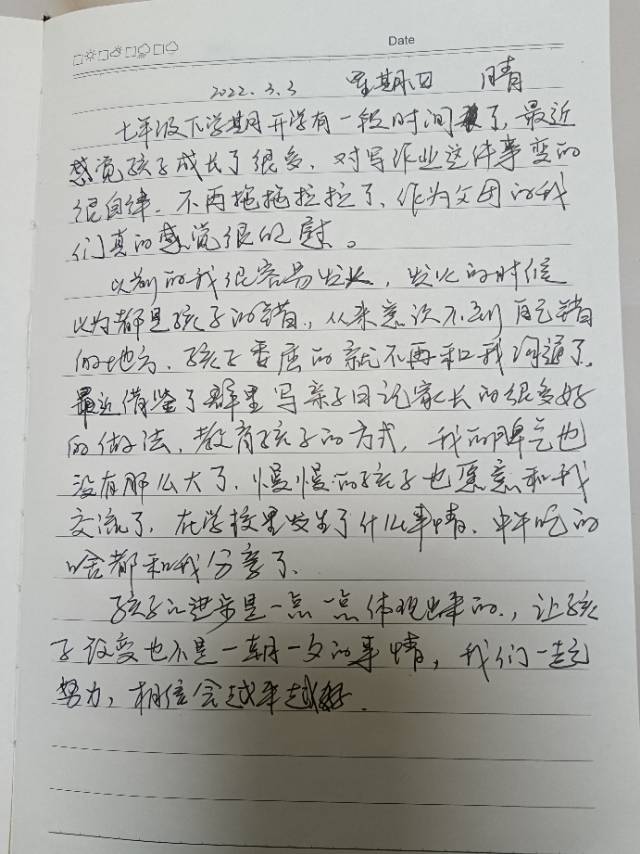 Date
2022.3.3 星期日 晴
七年级下学期开学有一段时间了，最近
感觉孩子成长了很多，对写作业这件事变的
很自律，不再拖拖拉拉了，作为父母的我
们真的感觉很的慰。
以前的我很容易发火，发火的时候
以为都是孩子的错，从来意识不到自己错
的地方，孩子委屈的就不再和我沟通了。
最近借鉴了群里写亲子日记家长的很多好
的做法，教育孩子的方式，我的脾气也
没有那么大了，慢慢的孩子也愿意和我
交流了，在学校里发生了什么事情，中午吃的
啥都和我分享了、
孩子的进步是一点一点体现出来的，让孩
子改变也不是一朝一夕的事情，我们一起
努力，相信会越来越好.